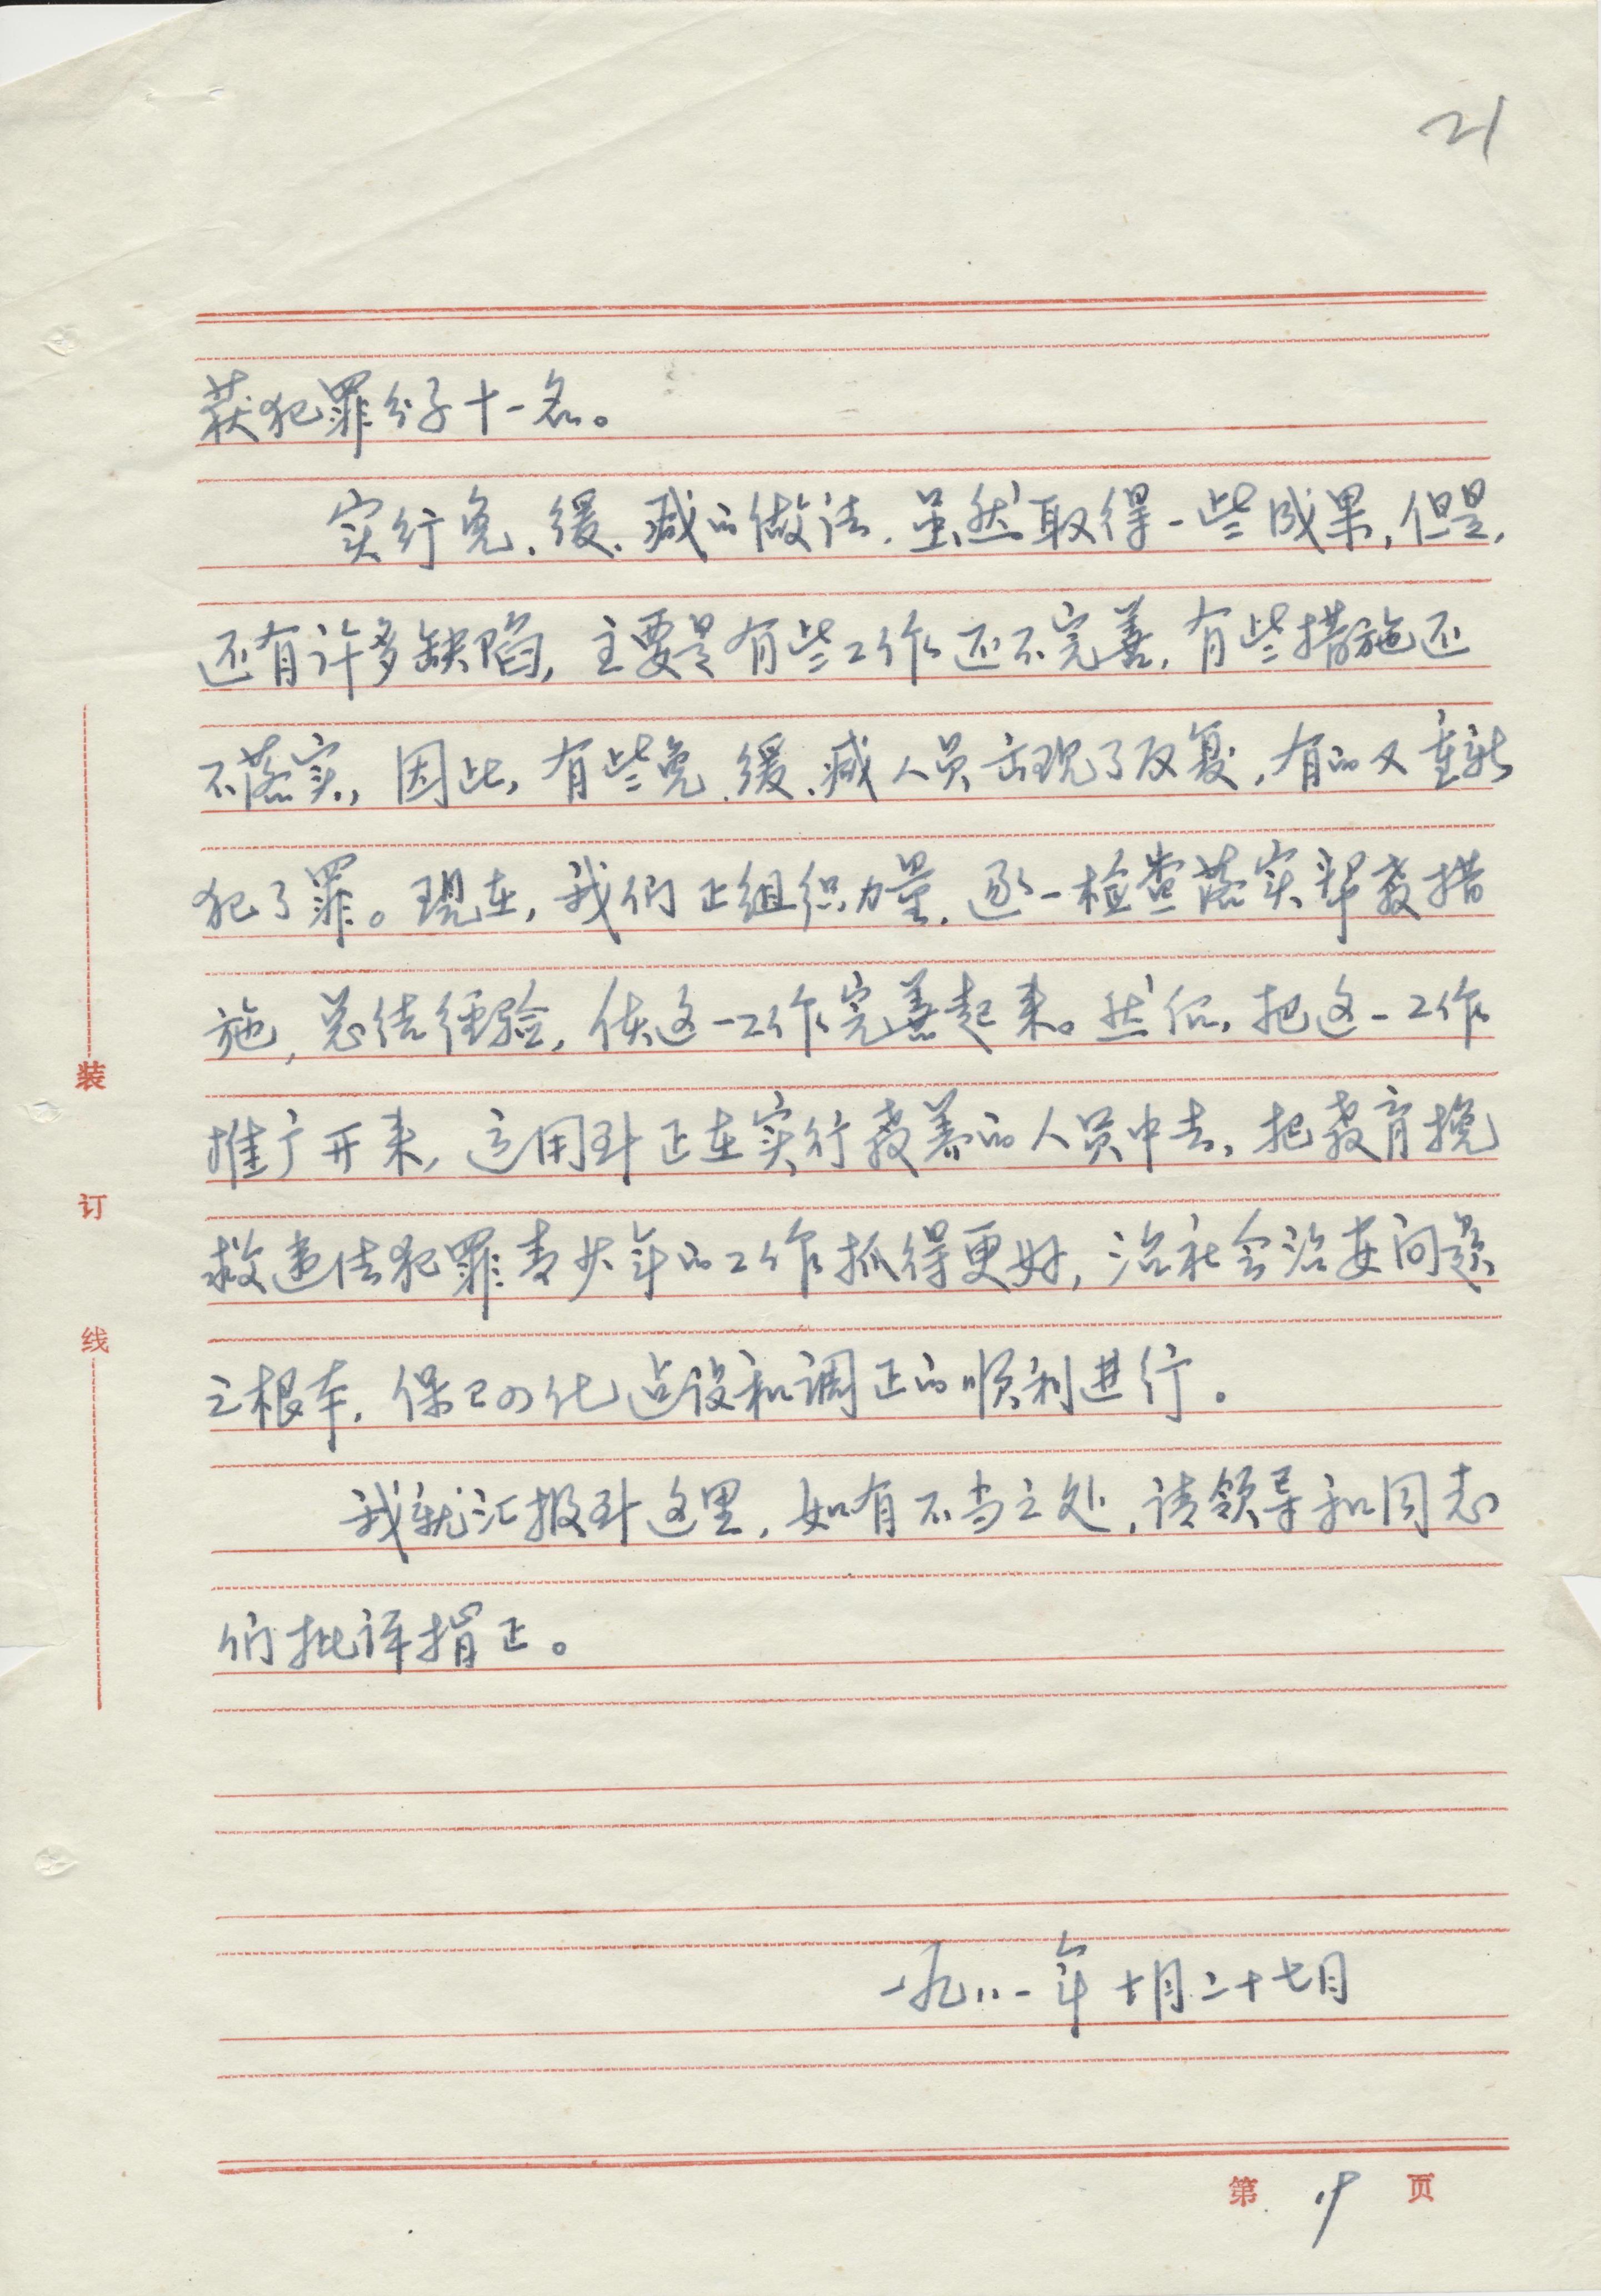 21
获犯罪分子十一名。
实行免、缓、减的做法,虽然取得一些成果,但是,
还有许多缺陷,主要是有些工作还不完善,有些措施还
不落实,因此,有些免、缓、减人员出现了反复,有的又重新
犯了罪。现在,我们正组织力量,逐一检查落实帮教措
施,总结经验,使这一工作完善起来。然后,把这一工作
推广开来,运用到正在实行教养的人员中去,把教育挽
救违法犯罪青少年的工作抓得更好,治社会治安问题
之根本,保卫四化建设和调正的顺利进行。
我就汇报到这里,如有不当之处,请领导和同志
们批评指正。
一九八一年十月二十七日
装
订
线
第 19 页